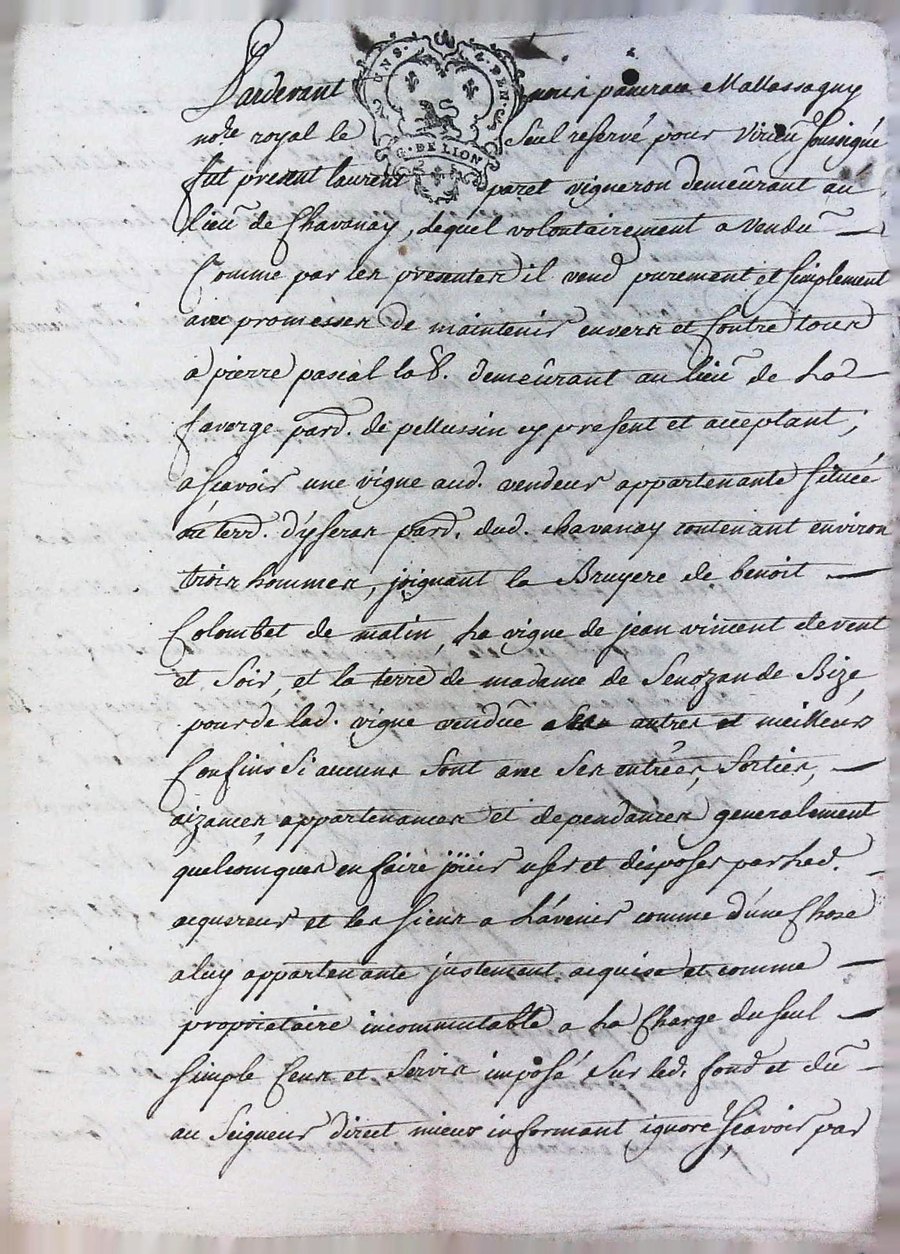 Pardevant nous pancrace Mallassagny
UN S. 4. DEN.
G. DE LION
no.re royal le Seul reservé pour Virieu Soussigné
fut present laurent paret vigneron demeûrant au
lieû de Chavanay, lequel volontairement a vendû
Comme par les presentes il vend purement et simplement
avec promesses de maintenir envers et Contre tous
a pierre pascal lab. demeûrant au lieû de La
faverge pard. de pellussin cy present et acceptant,
ascavoir une vigne aud. vendeur appartenante Située
au terrd. d'yseras pard. dud. chavanay contenant environ
trois hommes, joignant la Bruyere de benoit
Colombet de matin, La vigne de jean vincent de vent
et Soir, et la terre de madame de Senozan de Bize
pour de lad. vigne vendûe autres et meilleurs
Confins Si aucuns Sont avec Ses entrées, Sorties,
aizances, appartenances et dependances generalement
quelconques en faire joüir user et disposer par Led.
acquereur et les Siens a L'avenir comme d'une Chose
a luy appartenante justement acquise et comme
proprietaire incommutable a La Charge du Seul
Simple Cens et Servis imposé Sur led. fond et dû
au Seigneur direct mieux informant ignoré Scavoir par